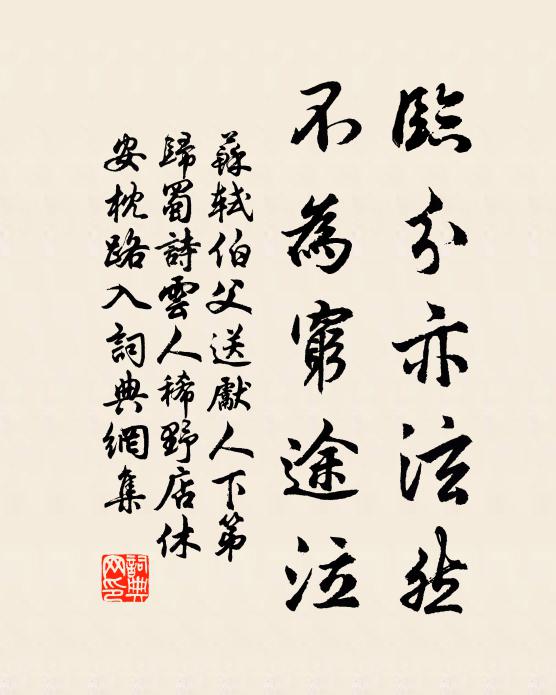 臨分亦泫然
不為窮途泣
蘇軾伯父送獻人下第
歸蜀詩雲人稀野店休
安枕路入詞典網集
詞典
网印